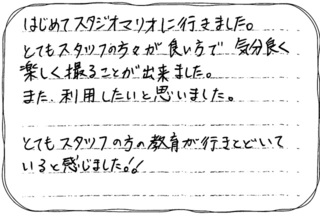 はじめてスタジオマリオに行きました。
とてもスタッフの方々が良い方で気分良く
楽しく撮ることが出来ました。
また、利用したいと思いました。
とてもスタッフの方の教育が行きとどいて
いると感じました!!